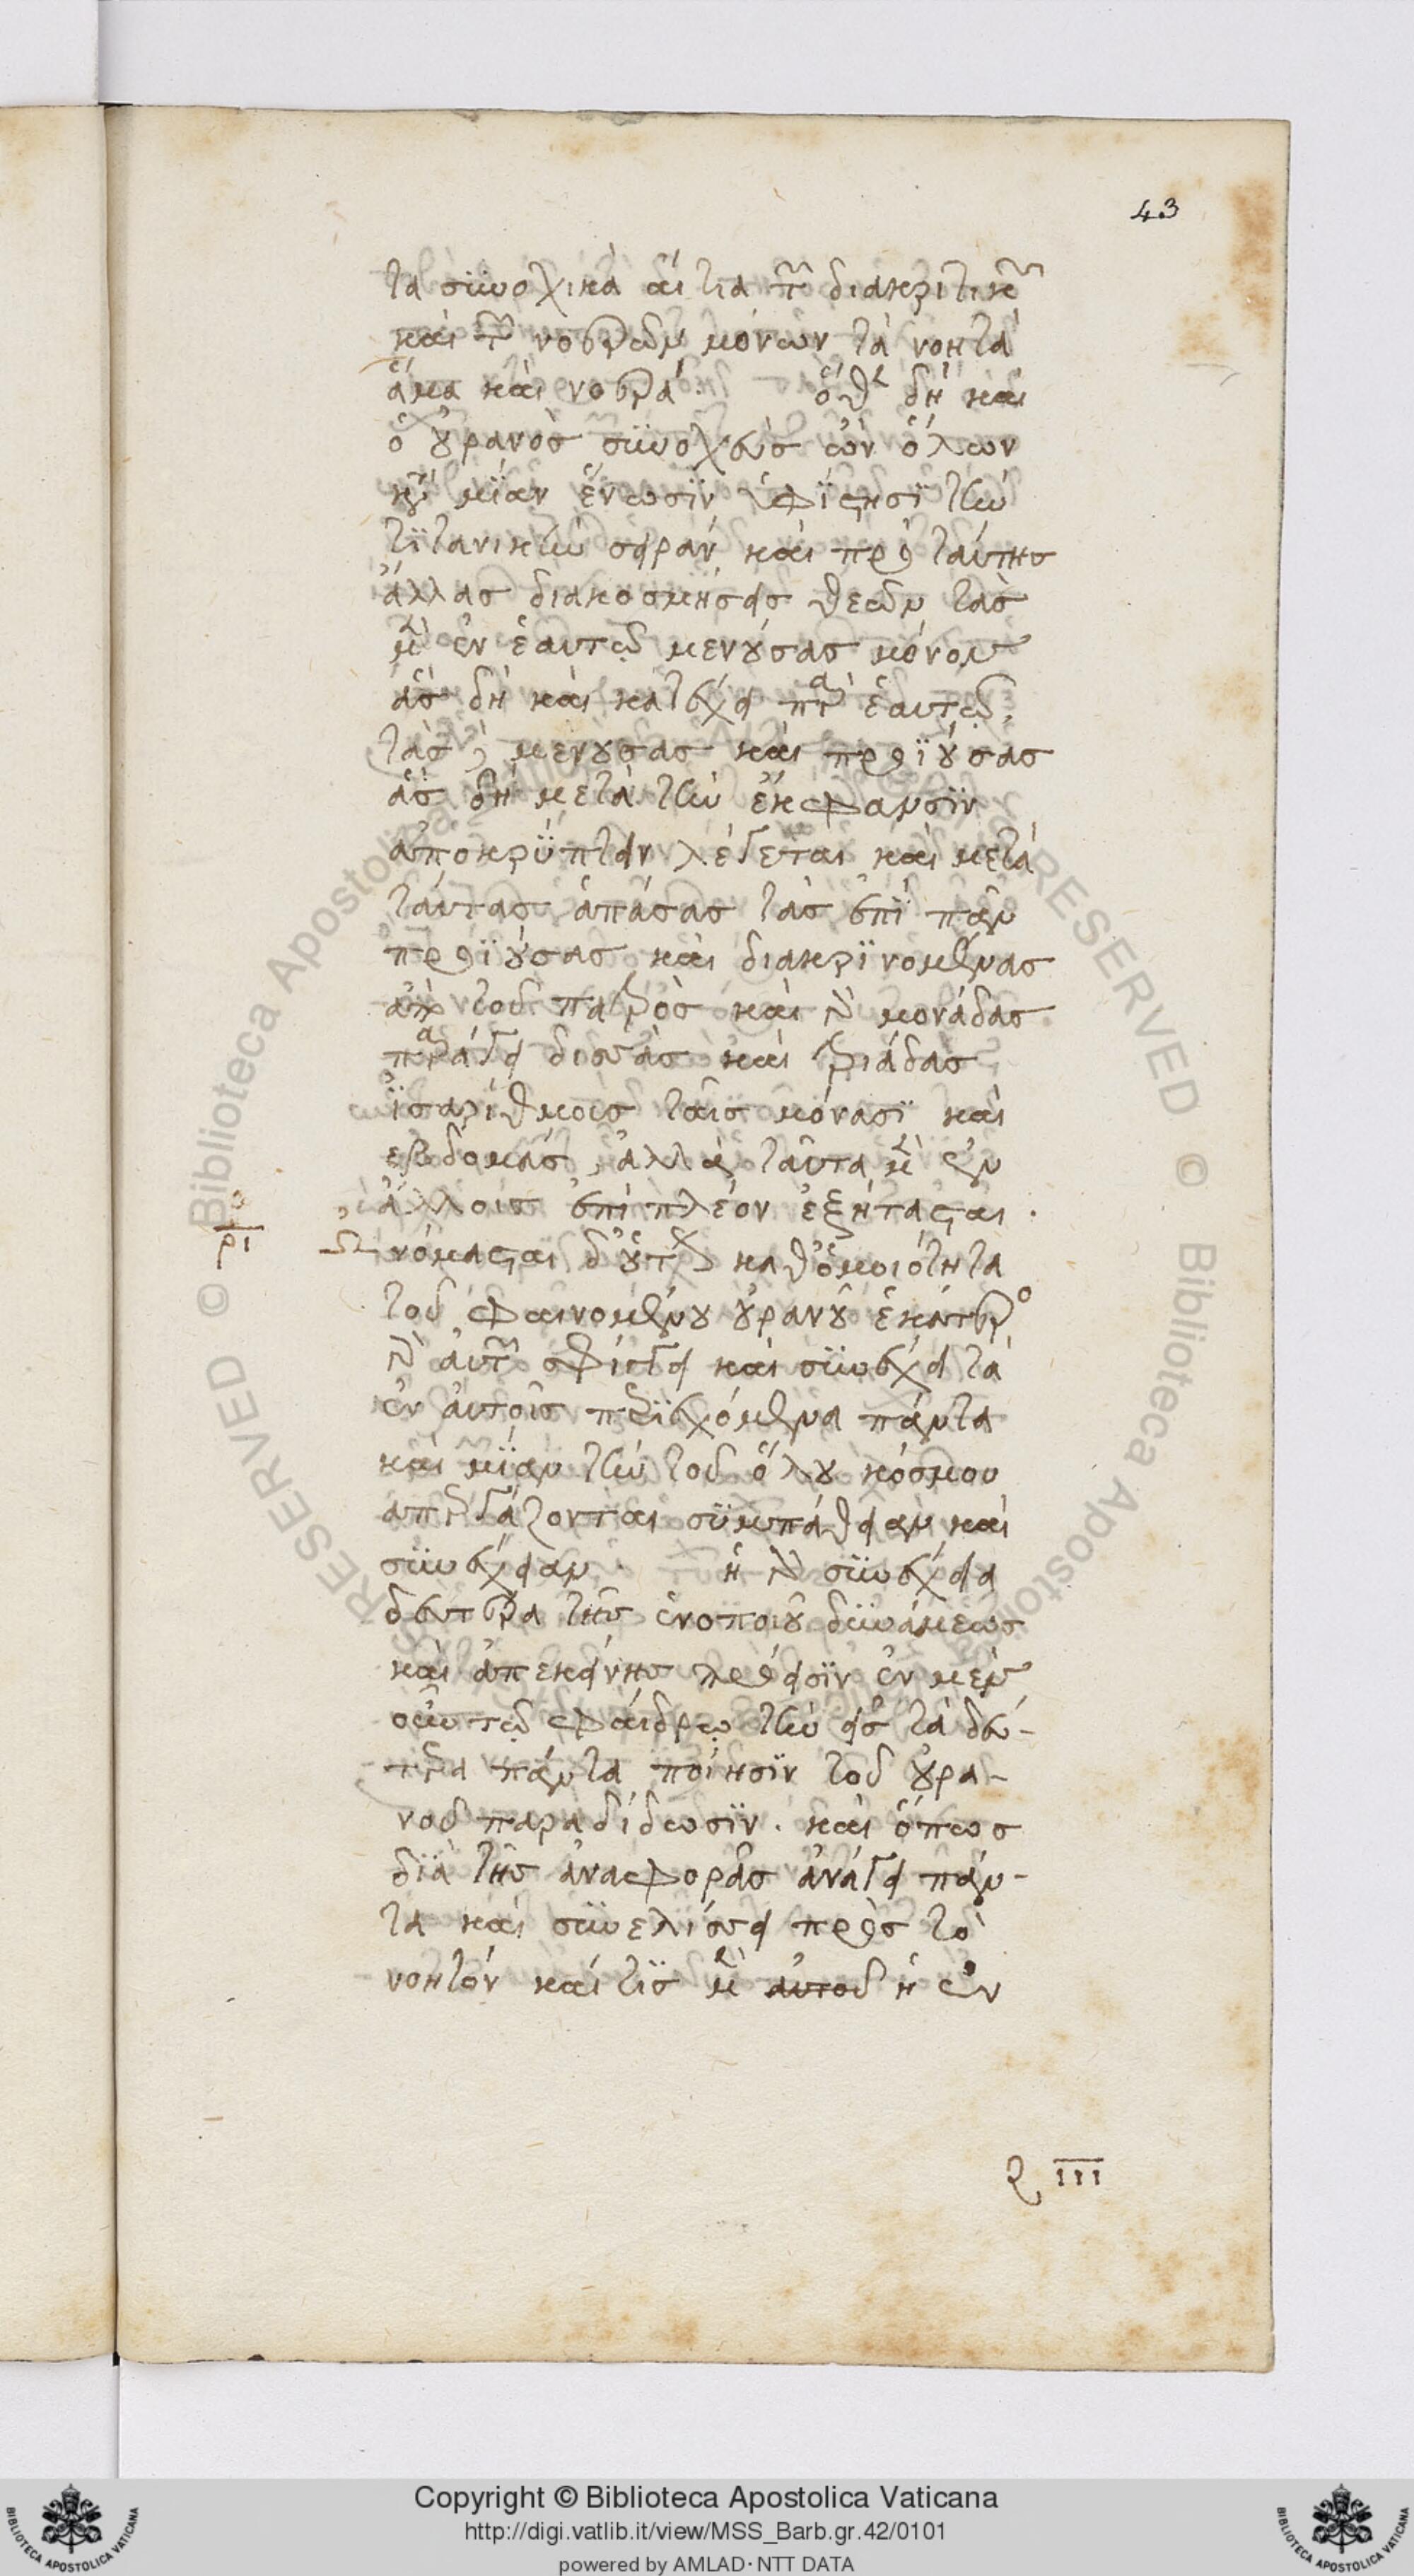 43
τὰ συνοχικὰ αἴτια τῶν διακριτικῶν
καὶ τῶν νοερῶν μόνων τὰ νοητὰ
ἅμα καὶ νοερά. ὅθεν δὴ καὶ
ὁ οὐρανὸς συνοχεὺς ὢν ὅλων
κατὰ μίαν ἕνωσιν ὑφίστησι τὴν
τιτανικὴν σειράν καὶ πρὸ ταύτης
ἄλλας διακοσμήσεις θεῶν τὰς
μὲν ἐν ἑαυτῷ μενούσας μόνον
ἃς δὴ καὶ κατέχει παρ' ἑαυτῷ,
τὰς δὲ μενούσας καὶ προϊούσας
ἃς δὴ μετὰ τὴν ἔκφανσιν
ἀποκρύπτειν λέγεται καὶ μετὰ
ταύτας ἁπάσας τὰς ἐπὶ πᾶν
προϊούσας καὶ διακρινομένας
ἀπὸ τοῦ πατρὸς καὶ γὰρ μονάδας
παράγει διττὰς καὶ τριάδας
ἰσαρίθμους ταῖς μονάσι καὶ
εβδομάς, ἀλλὰ ταῦτα μὲν ἐν
ἄλλοις ἐπὶ πλέον ἐξήτασται.
ρι
Ὠνόμασται δ' οὗτος καθ' ὁμοιότητα
τοῦ φαινομένου οὐρανοῦ ἑκάτερος
γὰρ αὐτῶν σφίγγει καὶ συνέχει τὰ
ἐν αὐτοῖς περιεχόμενα πάντα
καὶ μίαν τὴν τοῦ ὅλου κόσμου
ἀπεργάζονται συμπάθειαν καὶ
συνέχειαν. ἡ γὰρ συνέχεια
δευτέρα τῆς ἑνοποιοῦ δυνάμεως
καὶ ἀπεκείνης πρόεισιν ἐν μὲν
οὖν τῷ Φαίδρῳ τὴν εἰς τὰ δεύ-
τερα πάντα ποίησιν τοῦ οὐρα-
νοῦ παραδίδωσιν. καὶ ὅπως
διὰ τῆς ἀναφορᾶς ἀνάγει πάν-
τα καὶ συνελίσσει πρὸς τὸ
νοητόν καὶ τίς μὲν αὐτοῦ ἡ ἐν
III
Copyright © Biblioteca Apostolica Vaticana
http://digi.vatlib.it/view/MSS_Barb.gr.42/0101
powered by AMLAD · NTT DATA